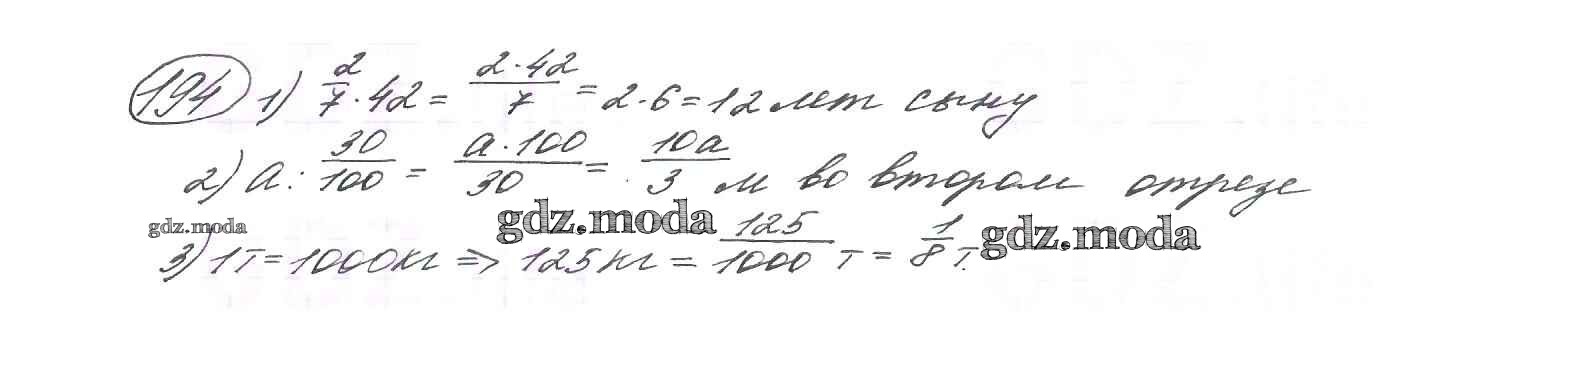 194 1) 2/7 · 42 = 2·42/7 = 2·6 = 12 лет сыну
2) a : 30/100 = a·100/30 = 10a/3 м во втором отрезе
gdz.moda gdz.moda gdz.moda
3) 1т = 1000кг => 125кг = 125/1000 т = 1/8 т.